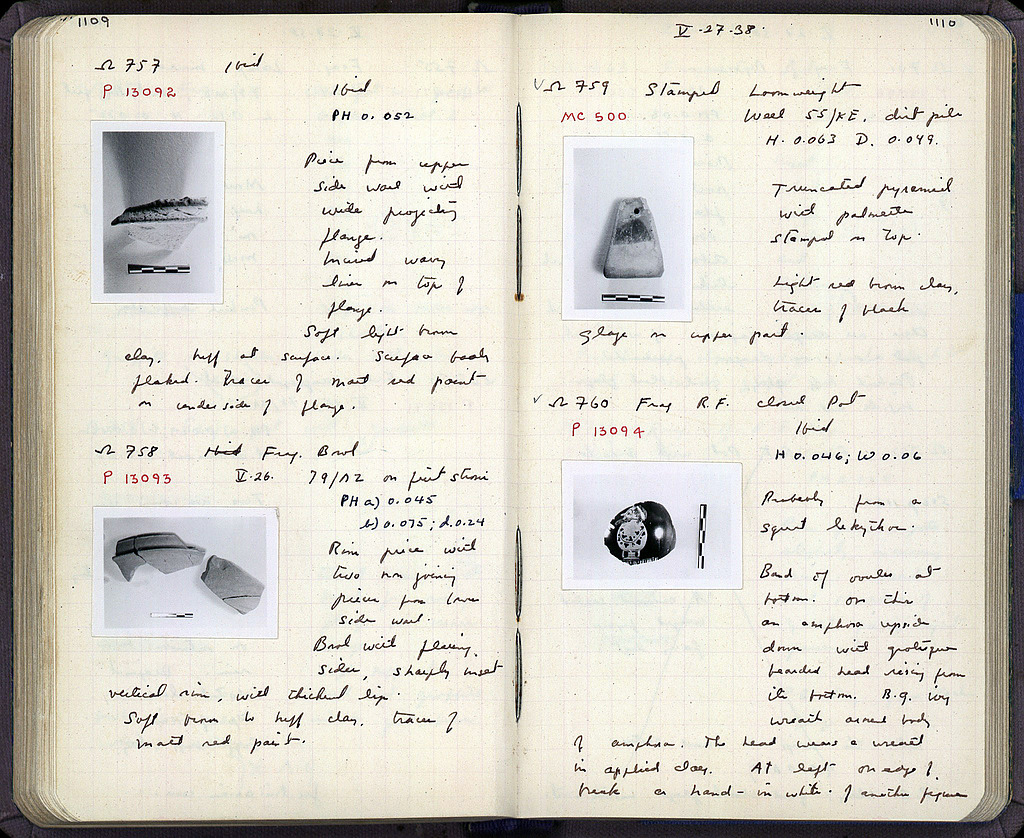 1109
Ω 757 Ibid
P 13092 Ibid
PH 0.052
Piece from upper
side wall with
wide projecting
flange.
Incised wavy
lines on top of
flange.
Soft light brown
clay, buff at surface. Surface badly
flaked. Traces of matt red paint
on underside of flange.
Ω 758 Frag. Bowl
P 13093 V.26. 79/ΛΖ on first strosis
PH a) 0.045
b) 0.075; d. 0.24
Rim piece with
two non joining
pieces from lower
side wall.
Bowl with flaring
sides, sharply inset
vertical rim, with thickened lip.
Soft brown to buff clay, traces of
matt red paint.
1110
V-27-38.
V Ω 759 Stamped Loomweight
MC 500 Well 55/ΚΕ, dirt pile
H. 0.063 D. 0.049.
Truncated pyramid
with palmette
stamped on top.
Light red brown clay,
traces of black
glaze on upper part.
V Ω 760 Frag R.F. closed Pot
P 13094 Ibid
H 0.046; W 0.06
Probably from a
squat lekythos.
Band of ovules at
bottom. On this
an amphora upside
down with grotesque
bearded head rising from
its bottom. B.g. ivy
wreath around body
of amphora. The head wears a wreath
in applied clay. At left on edge of
break a hand - in white - of another figure